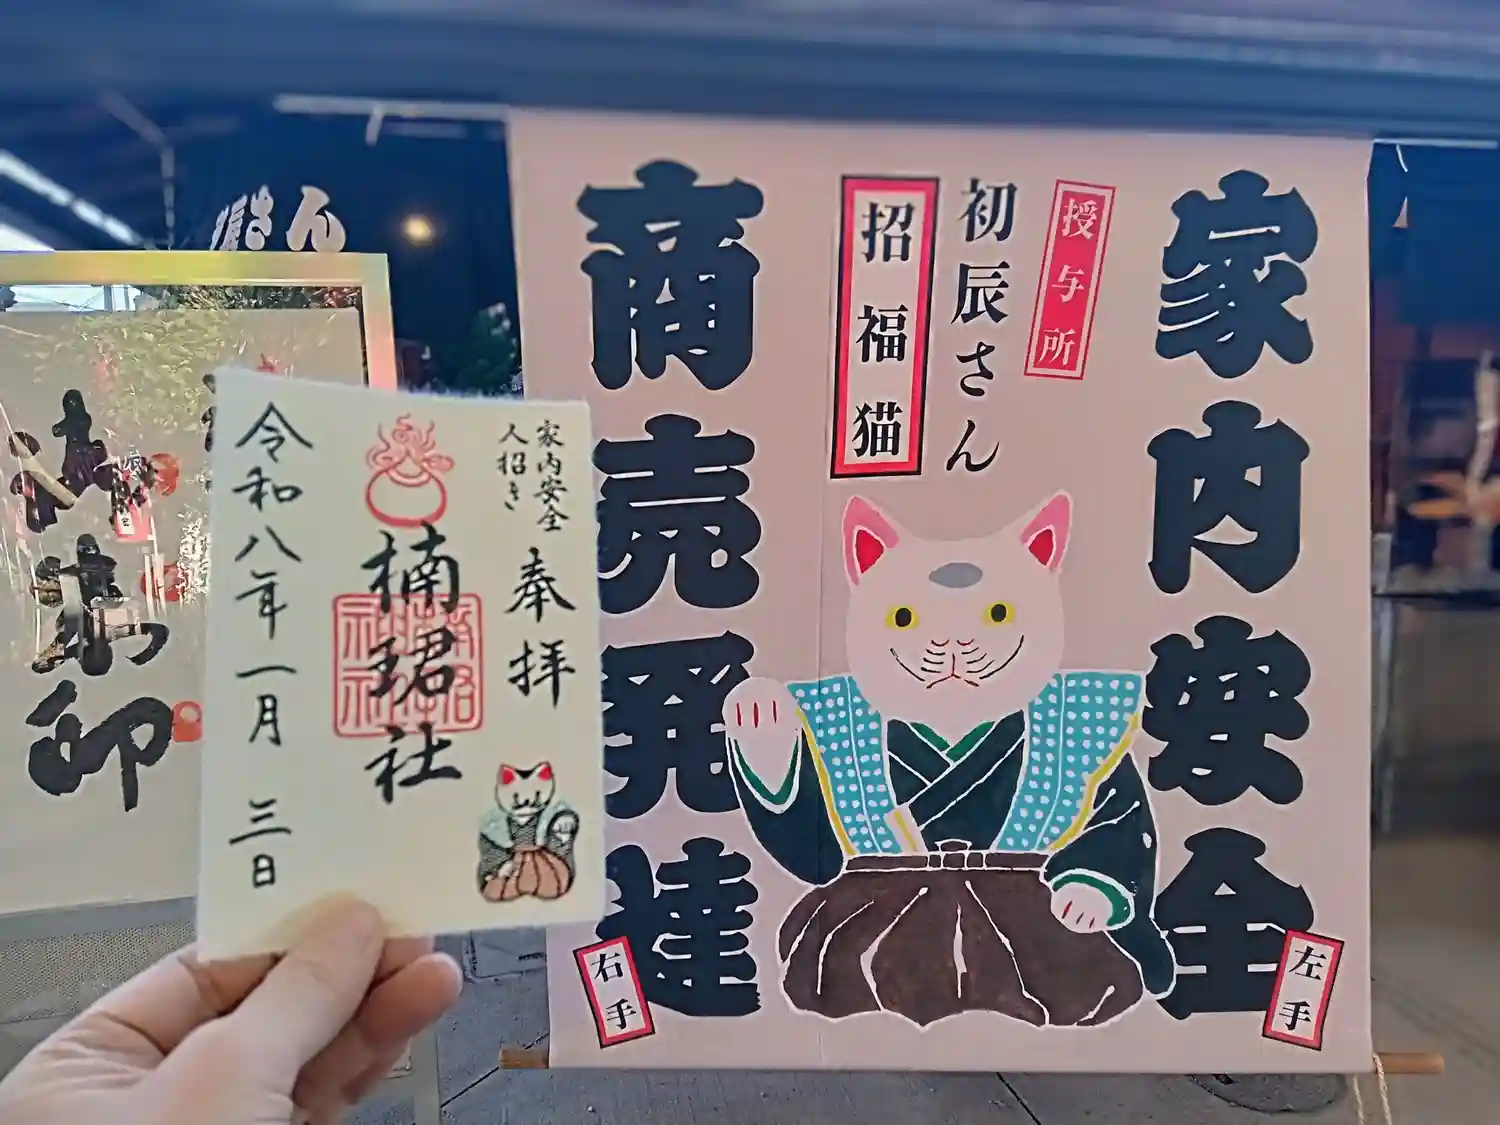 家内安全
授与所
初辰さん
招福猫
商売発達
左手
右手
家内安全
人招き
奉拝
楠珺社
令和八年一月三日
辰さん
御朱印